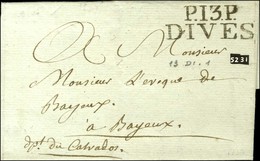 P.13.P
DIVES
A Monsieur
13 DI. 1
5231
Monsieur L'eveque de
Bayeux.
à Bayeux.
dpt. du Calvados.